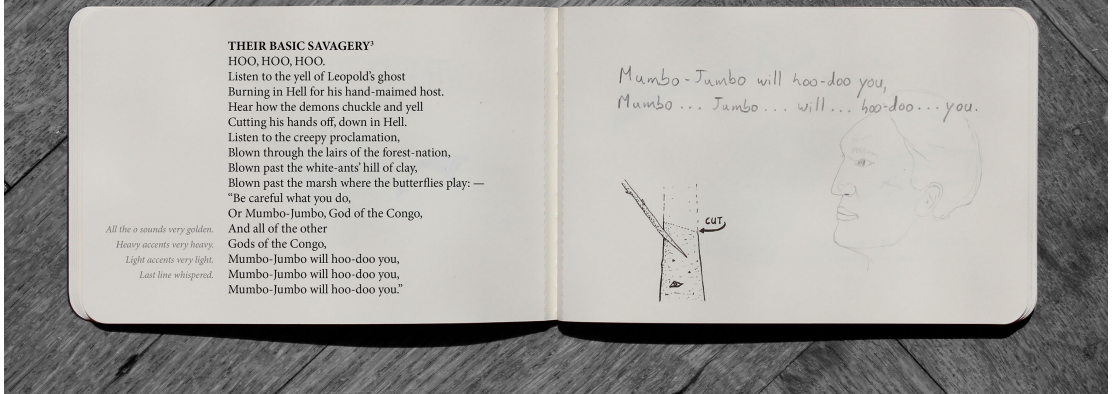 THEIR BASIC SAVAGERY³
HOO, HOO, HOO.
Listen to the yell of Leopold's ghost
Burning in Hell for his hand-maimed host.
Hear how the demons chuckle and yell
Cutting his hands off, down in Hell.
Listen to the creepy proclamation,
Blown through the lairs of the forest-nation,
Blown past the white-ants' hill of clay,
Blown past the marsh where the butterflies play: —
“Be careful what you do,
Or Mumbo-Jumbo, God of the Congo,
And all of the other
Gods of the Congo,
Mumbo-Jumbo will hoo-doo you,
Mumbo-Jumbo will hoo-doo you,
Mumbo-Jumbo will hoo-doo you.”
All the o sounds very golden.
Heavy accents very heavy.
Light accents very light.
Last line whispered.
Mumbo-Jumbo will hoo-doo you,
Mumbo... Jumbo... will... hoo-doo... you.
CUT